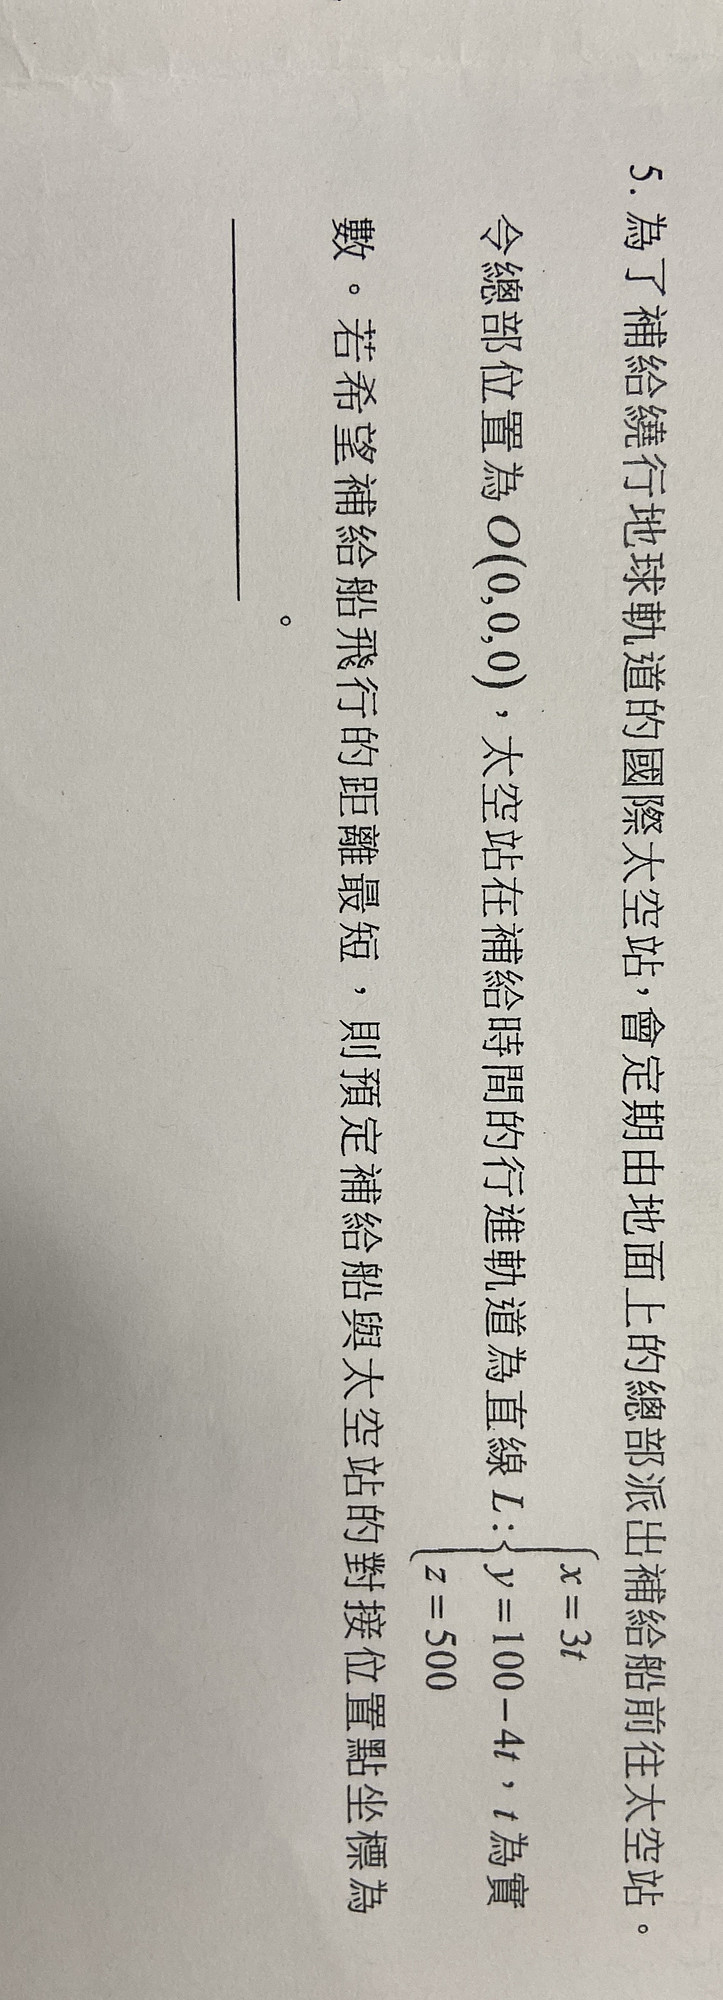 5. 為了補給繞行地球軌道的國際太空站，會定期由地面上的總部派出補給船前往太空站。
令總部位置為 O(0,0,0)，太空站在補給時間的行進軌道為直線 L：{x=3t
y=100-4t，t 為實
z=500
數。若希望補給船飛行的距離最短，則預定補給船與太空站的對接位置點坐標為
。